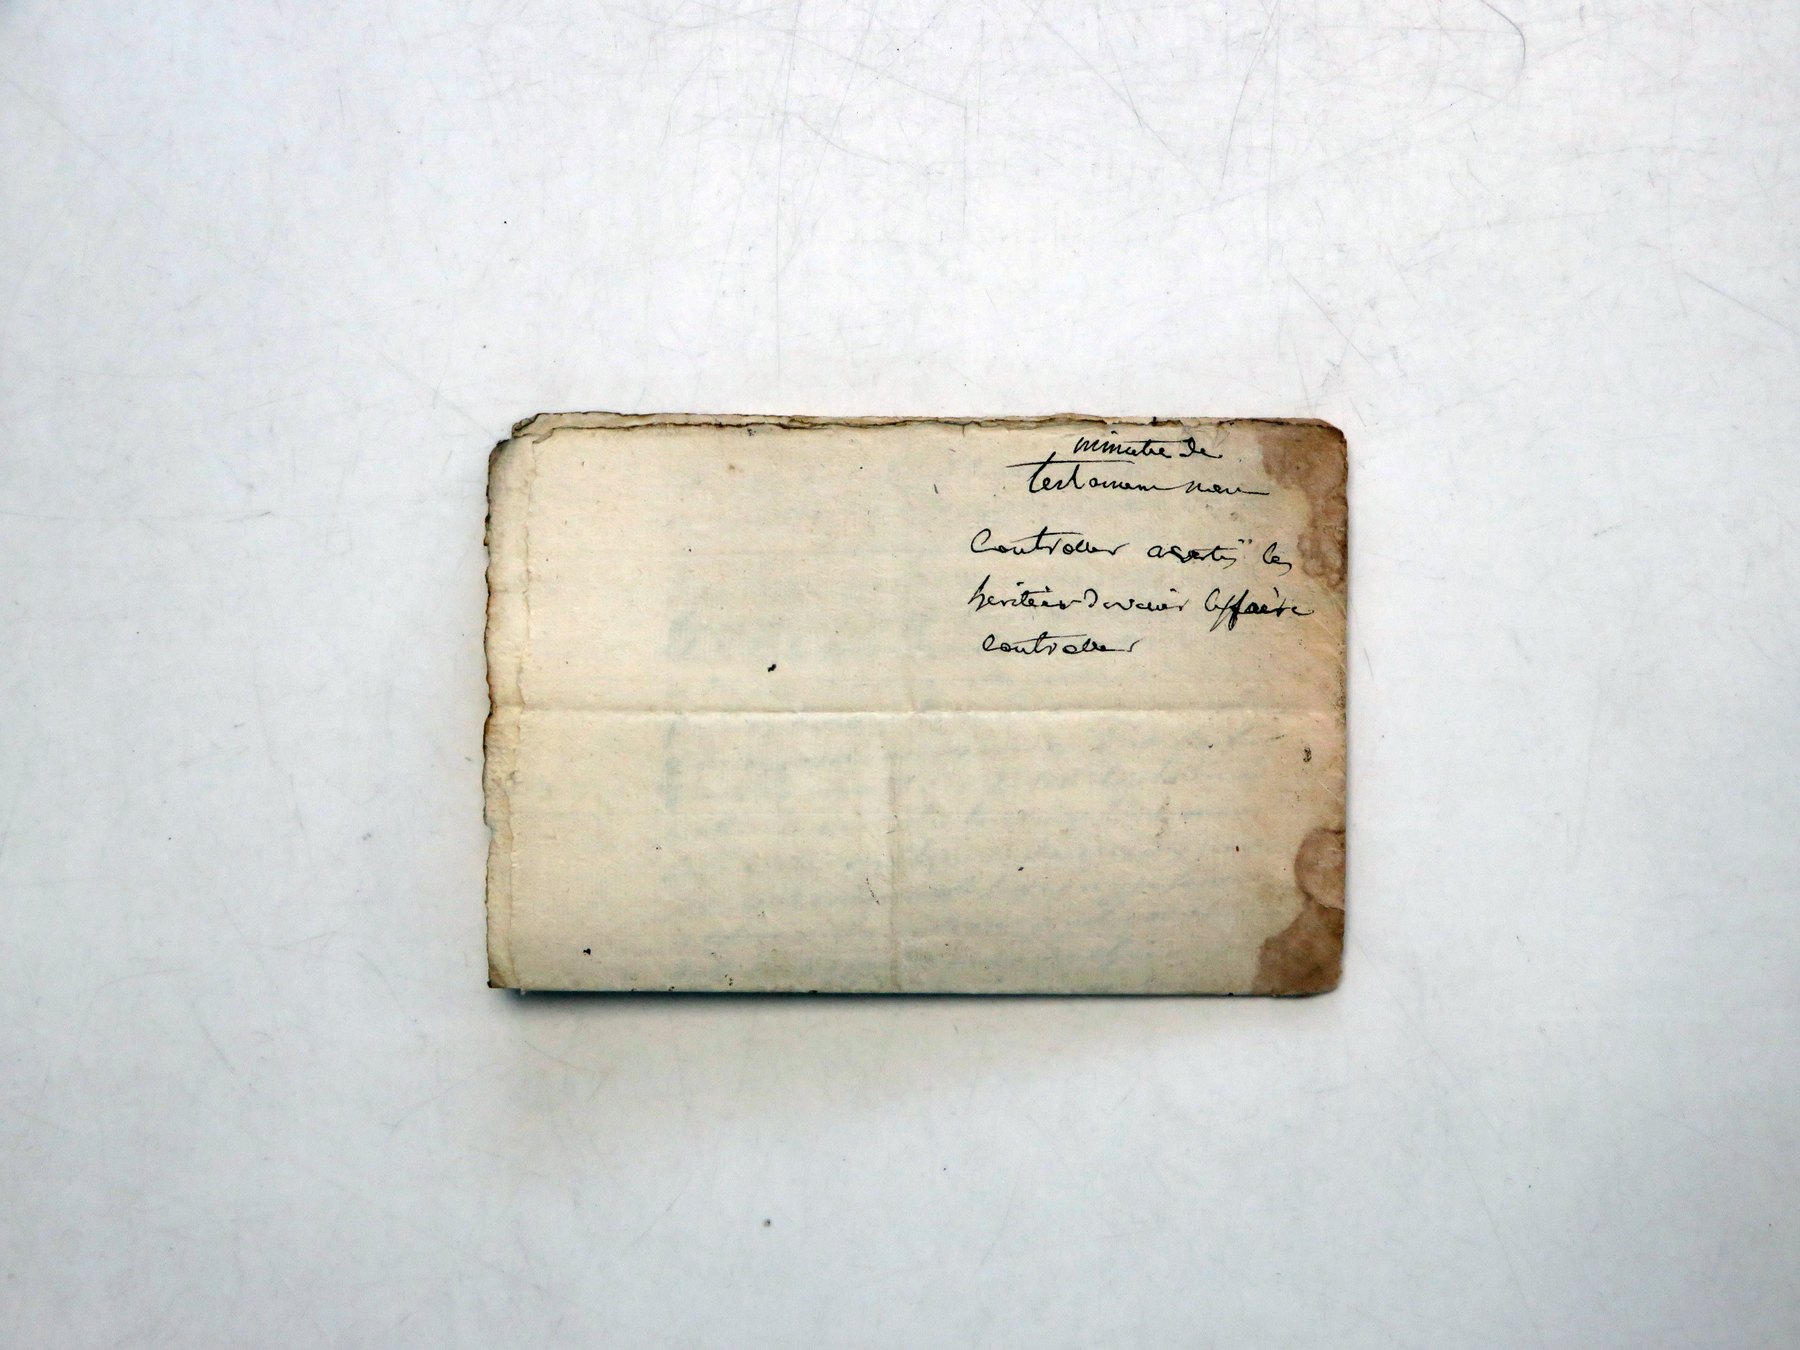 minutte de
testamem non
Controller avertir les
heritiers de venir le ffaire
controller